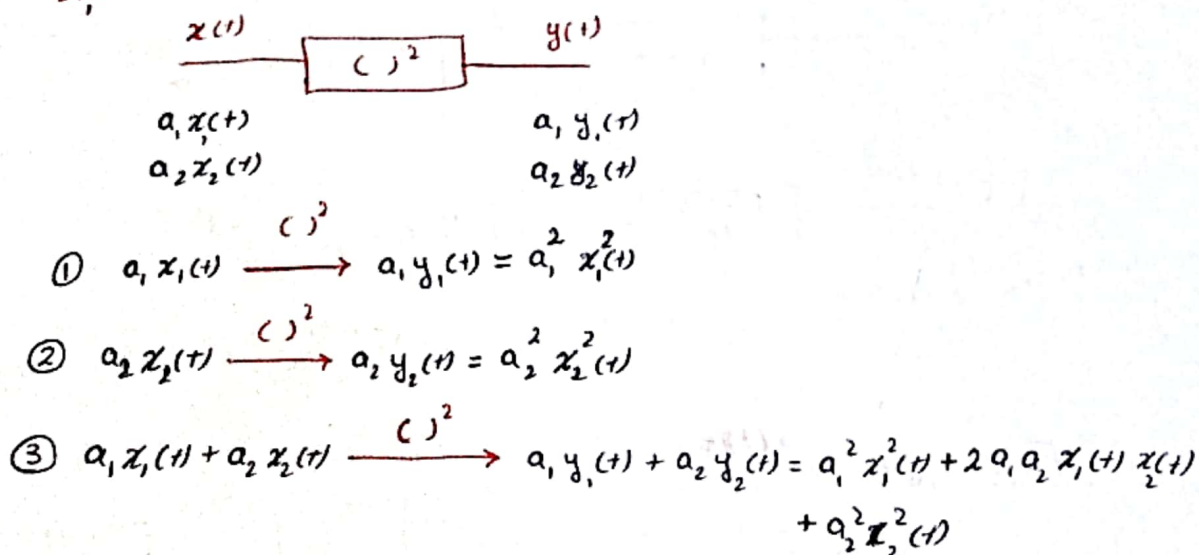 x(t) ( )² y(t)
a₁x₁(t) a₁y₁(t)
a₂x₂(t) a₂y₂(t)
( )²
① a₁x₁(t) → a₁y₁(t) = a₁² x₁²(t)
( )²
② a₂x₂(t) → a₂y₂(t) = a₂² x₂²(t)
( )²
③ a₁x₁(t) + a₂x₂(t) → a₁y₁(t) + a₂y₂(t) = a₁²x₁²(t) + 2a₁a₂x₁(t)x₂(t)
+ a₂²x₂²(t)